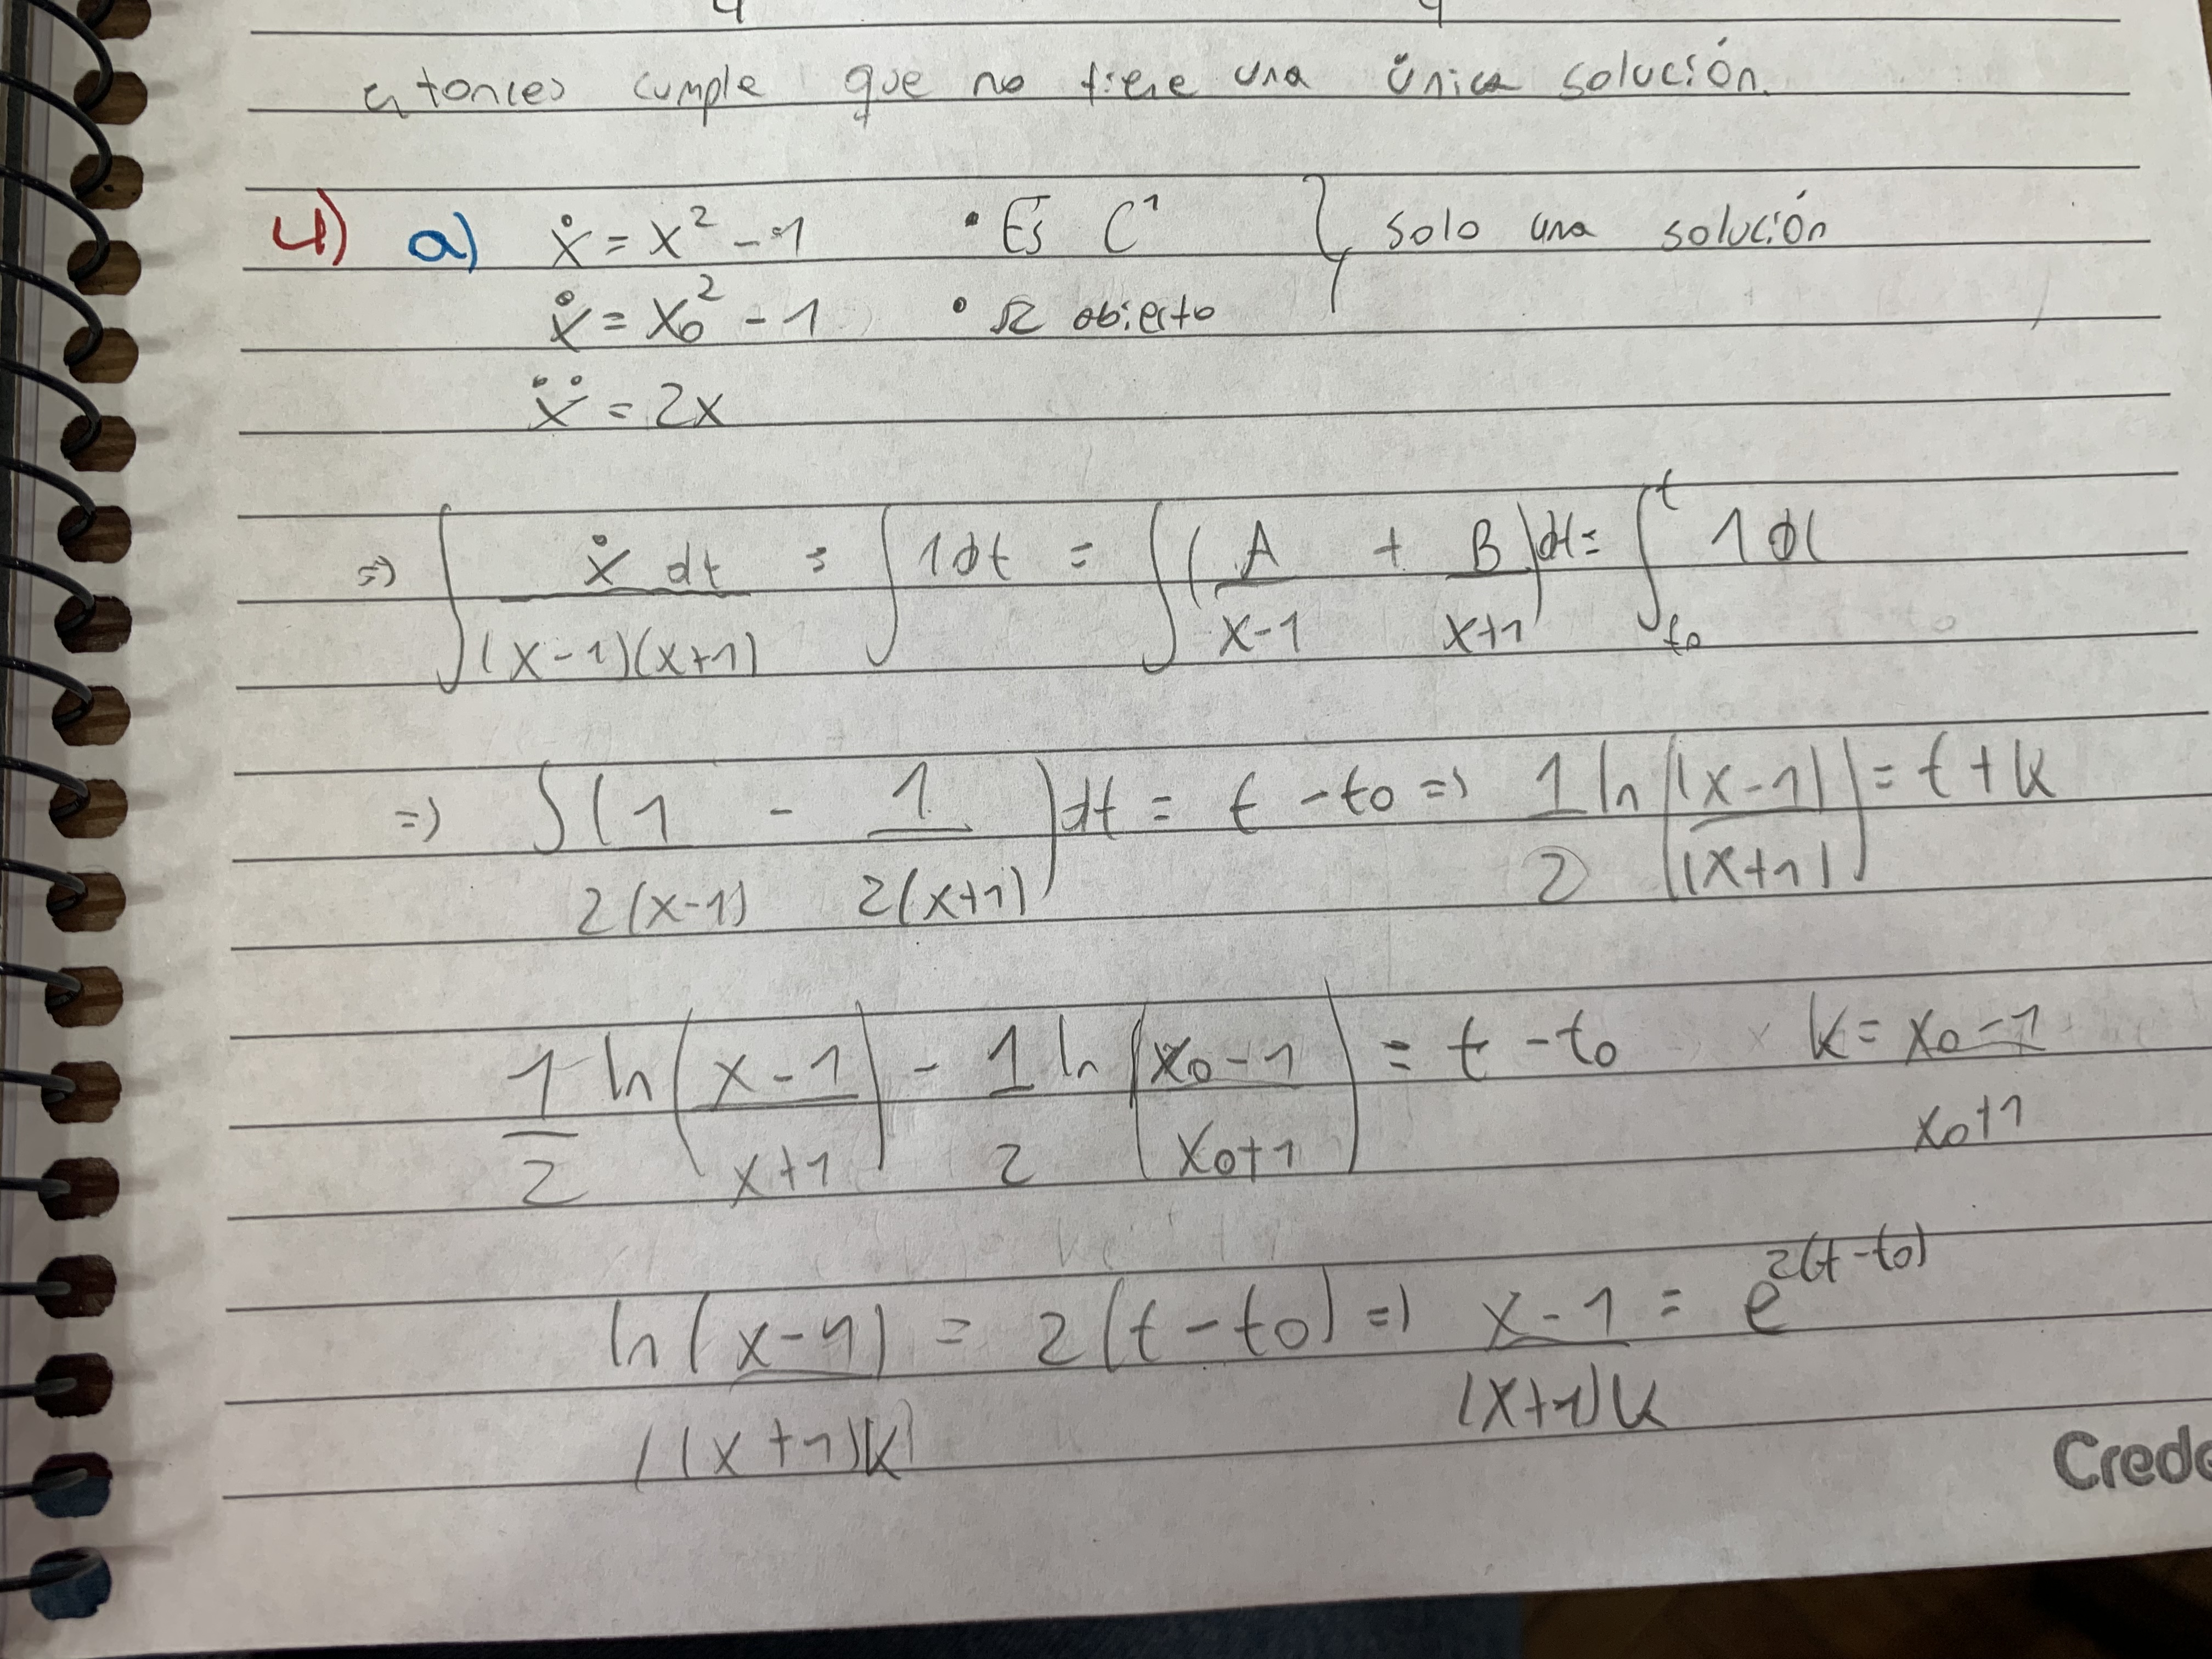 entonces cumple que no tiene una única solución.
4) a) ẋ = x² - 1 • Es C¹ } solo una solución
ẋ = x₀² - 1 • Ω abierto
ẍ = 2x
=) ∫ ẋ dt / (x-1)(x+1) = ∫ 1dt = ∫ ( A / x-1 + B / x+1 ) dt = ∫ₜ₀ᵗ 1 dt
=) ∫ ( 1 / 2(x-1) - 1 / 2(x+1) ) dt = t - to =) 1/2 ln ( (x-1) / (x+1) ) = t + k
1/2 ln ( x-1 / x+1 ) - 1/2 ln ( x₀-1 / x₀+1 ) = t - to k = x₀-1 / x₀+1
ln ( x-1 / (x+1)k ) = 2(t - to) =) x-1 / (x+1)k = e^2(t-to)